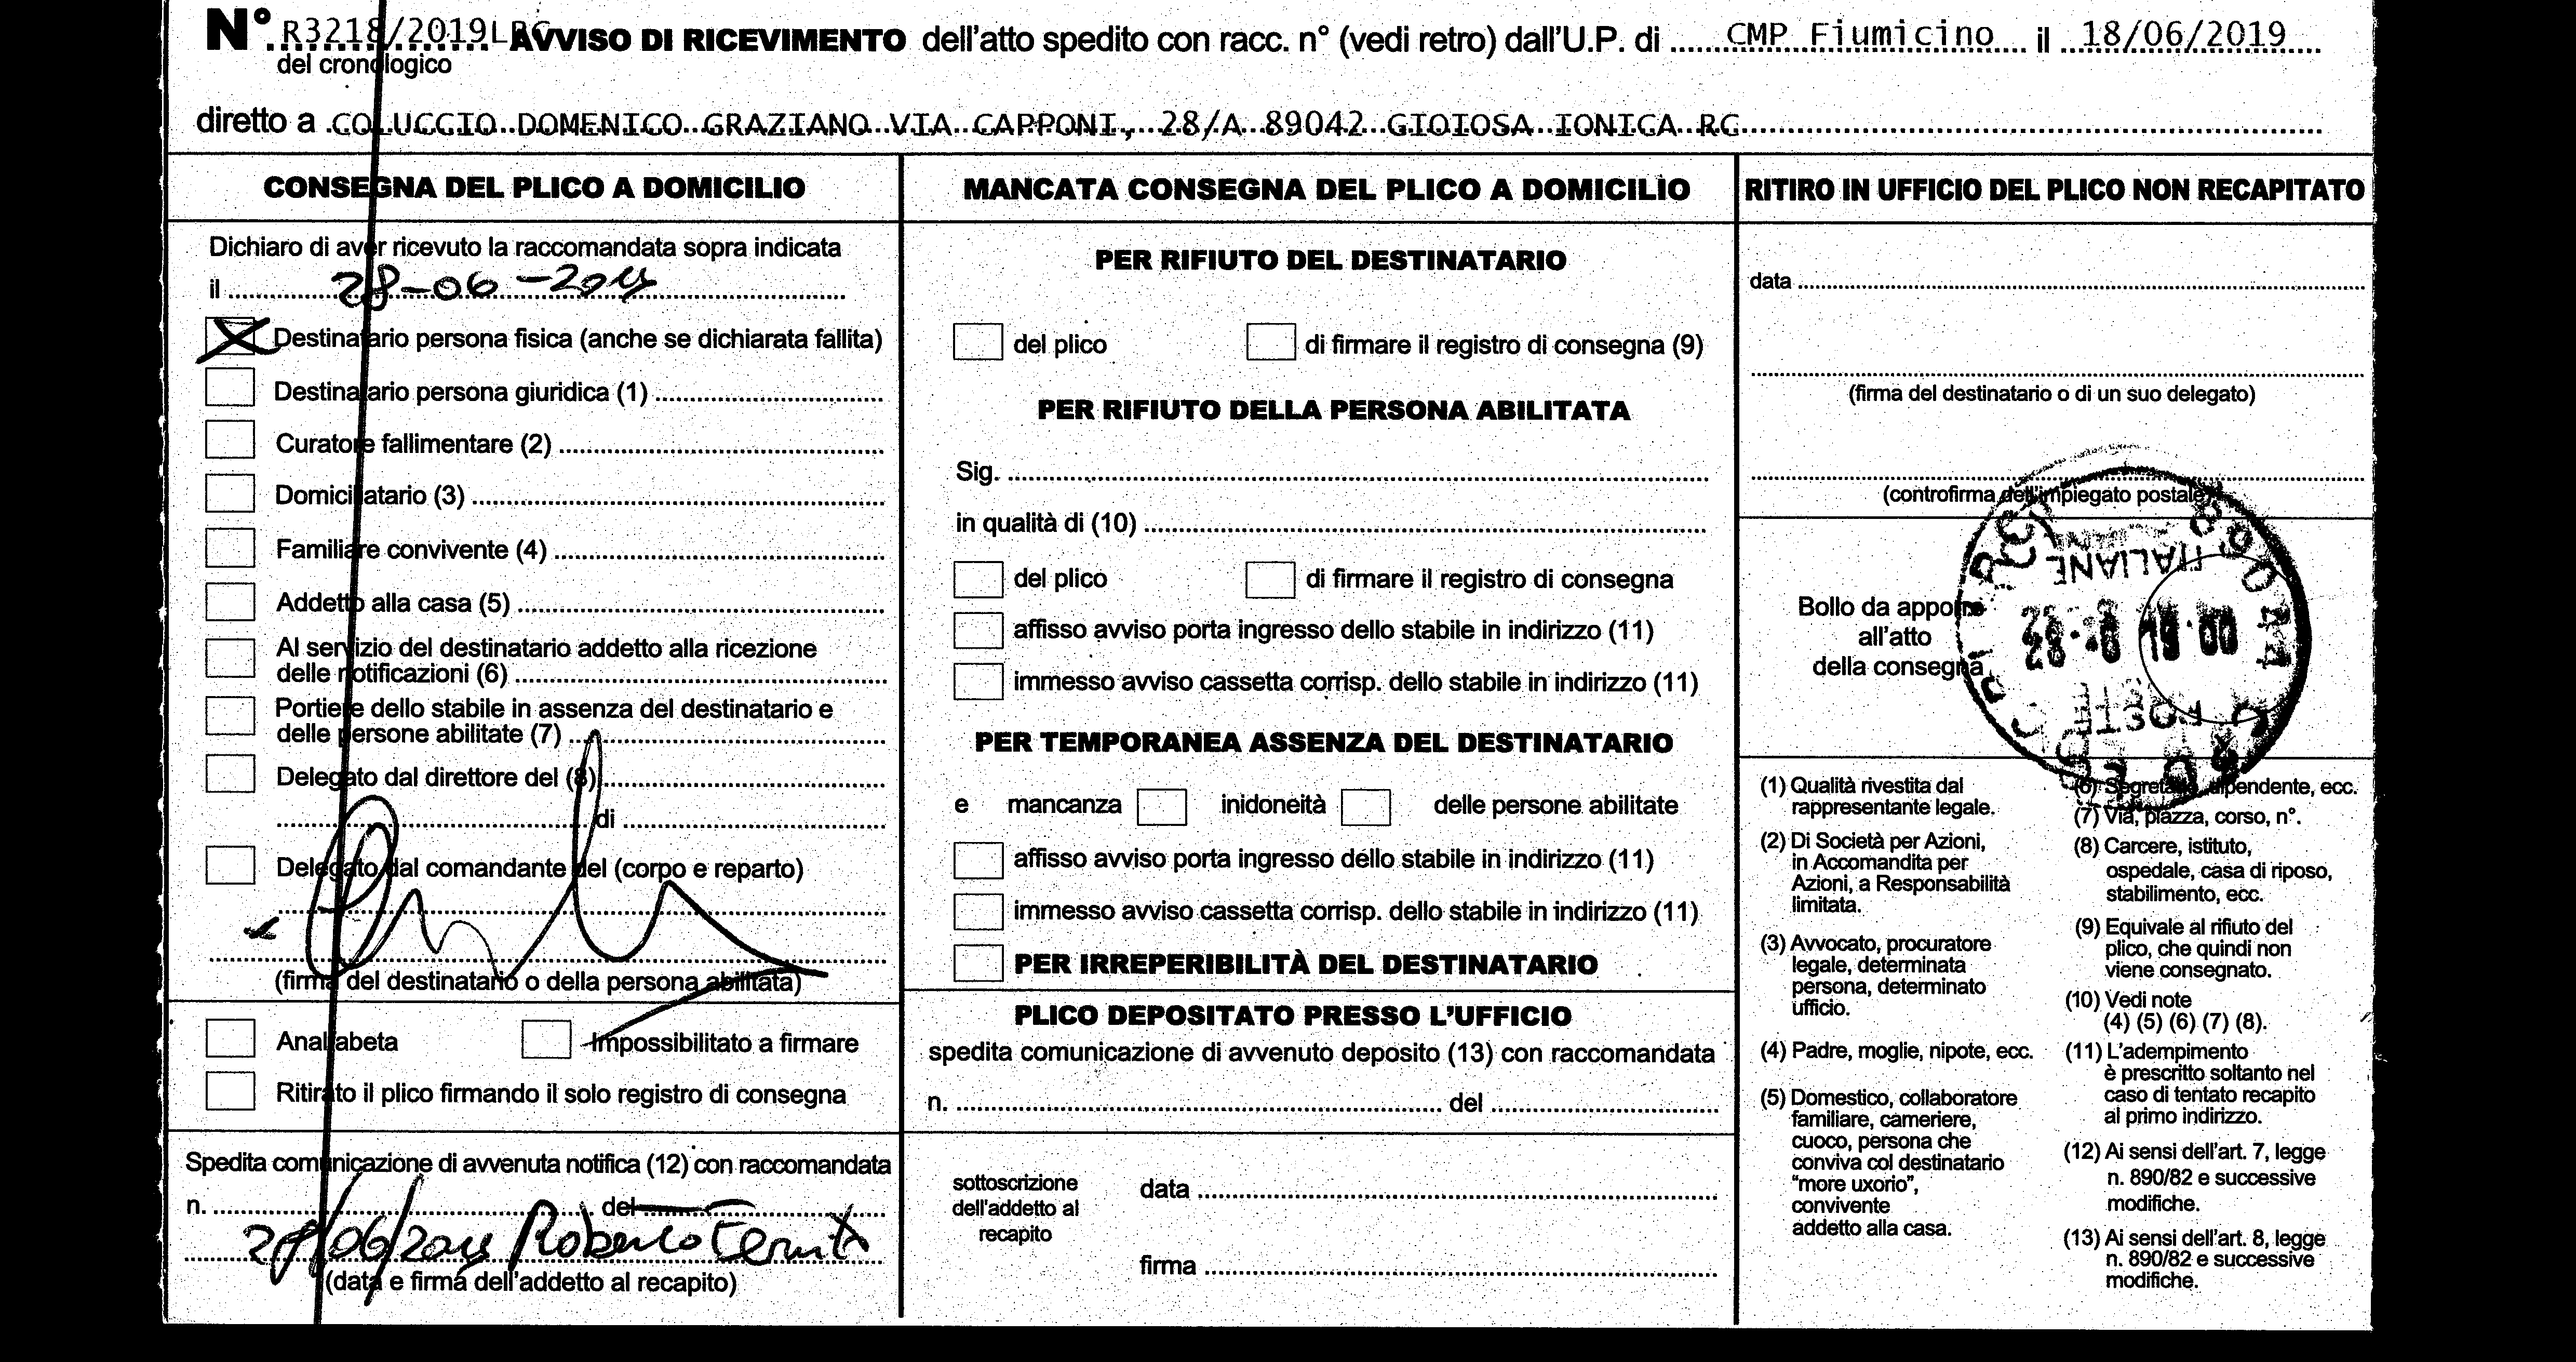 N° R3218/2019LRG AVVISO DI RICEVIMENTO dell'atto spedito con racc. n° (vedi retro) dall'U.P. di CMP Fiumicino il 18/06/2019
del cronologico
diretto a COLUCCIO DOMENICO GRAZIANO VIA CAPPONI, 28/A 89042 GIOIOSA IONICA RC
CONSEGNA DEL PLICO A DOMICILIO
Dichiaro di aver ricevuto la raccomandata sopra indicata
il 28-06-2019
Destinatario persona fisica (anche se dichiarata fallita)
Destinatario persona giuridica (1)
Curatore fallimentare (2)
Domiciliatario (3)
Familiare convivente (4)
Addetto alla casa (5)
Al servizio del destinatario addetto alla ricezione
delle notificazioni (6)
Portiere dello stabile in assenza del destinatario e
delle persone abilitate (7)
Delegato dal direttore del (8)
di
Delegato dal comandante del (corpo e reparto)
(firma del destinatario o della persona abilitata)
Analfabeta
Impossibilitato a firmare
Ritirato il plico firmando il solo registro di consegna
Spedita comunicazione di avvenuta notifica (12) con raccomandata
n. del
28/06/2019 Roberto
(data e firma dell'addetto al recapito)
MANCATA CONSEGNA DEL PLICO A DOMICILIO
PER RIFIUTO DEL DESTINATARIO
del plico
di firmare il registro di consegna (9)
PER RIFIUTO DELLA PERSONA ABILITATA
Sig.
in qualità di (10)
del plico
di firmare il registro di consegna
affisso avviso porta ingresso dello stabile in indirizzo (11)
immesso avviso cassetta corrisp. dello stabile in indirizzo (11)
PER TEMPORANEA ASSENZA DEL DESTINATARIO
e mancanza inidoneità delle persone abilitate
affisso avviso porta ingresso dello stabile in indirizzo (11)
immesso avviso cassetta corrisp. dello stabile in indirizzo (11)
PER IRREPERIBILITÀ DEL DESTINATARIO
PLICO DEPOSITATO PRESSO L'UFFICIO
spedita comunicazione di avvenuto deposito (13) con raccomandata
n. del
sottoscrizione
dell'addetto al
recapito
data
firma
RITIRO IN UFFICIO DEL PLICO NON RECAPITATO
data
(firma del destinatario o di un suo delegato)
(controfirma dell'impiegato postale)
Bollo da apporre
all'atto
della consegna
POSTE
ITALIANE
(1) Qualità rivestita dal
rappresentante legale.
(2) Di Società per Azioni,
in Accomandita per
Azioni, a Responsabilità
limitata.
(3) Avvocato, procuratore
legale, determinata
persona, determinato
ufficio.
(4) Padre, moglie, nipote, ecc.
(5) Domestico, collaboratore
familiare, cameriere,
cuoco, persona che
conviva col destinatario
"more uxorio",
convivente
addetto alla casa.
(6) Segretario, dipendente, ecc.
(7) Via, piazza, corso, n°.
(8) Carcere, istituto,
ospedale, casa di riposo,
stabilimento, ecc.
(9) Equivale al rifiuto del
plico, che quindi non
viene consegnato.
(10) Vedi note
(4) (5) (6) (7) (8).
(11) L'adempimento
è prescritto soltanto nel
caso di tentato recapito
al primo indirizzo.
(12) Ai sensi dell'art. 7, legge
n. 890/82 e successive
modifiche.
(13) Ai sensi dell'art. 8, legge
n. 890/82 e successive
modifiche.